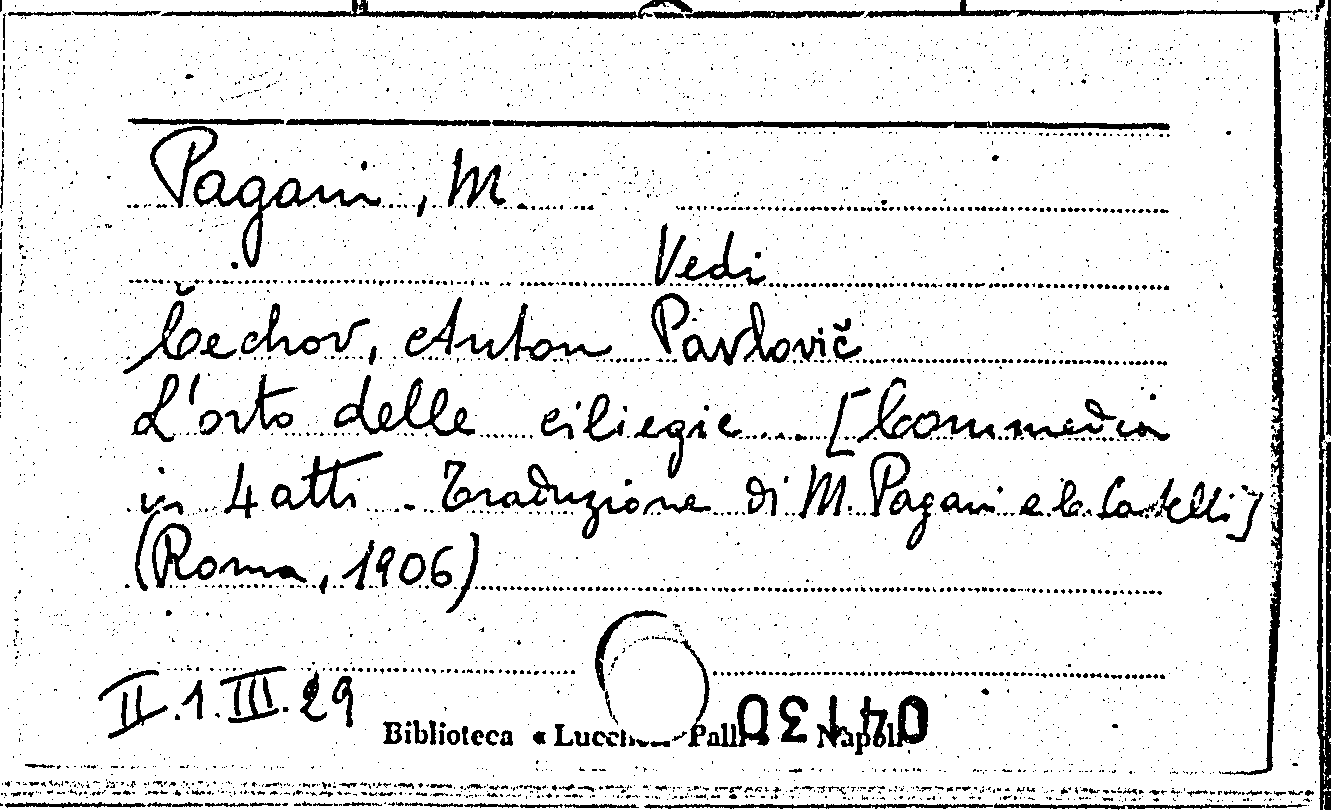 Pagani, M.
Vedi
Čechov, Anton Pavlovič
L'orto delle ciliegie ... [Commedia
in 4 atti. Traduzione di M. Pagani e C. Castelli]
(Roma, 1906)
II.1.III.29
Biblioteca « Lucchesi Palli » Napoli